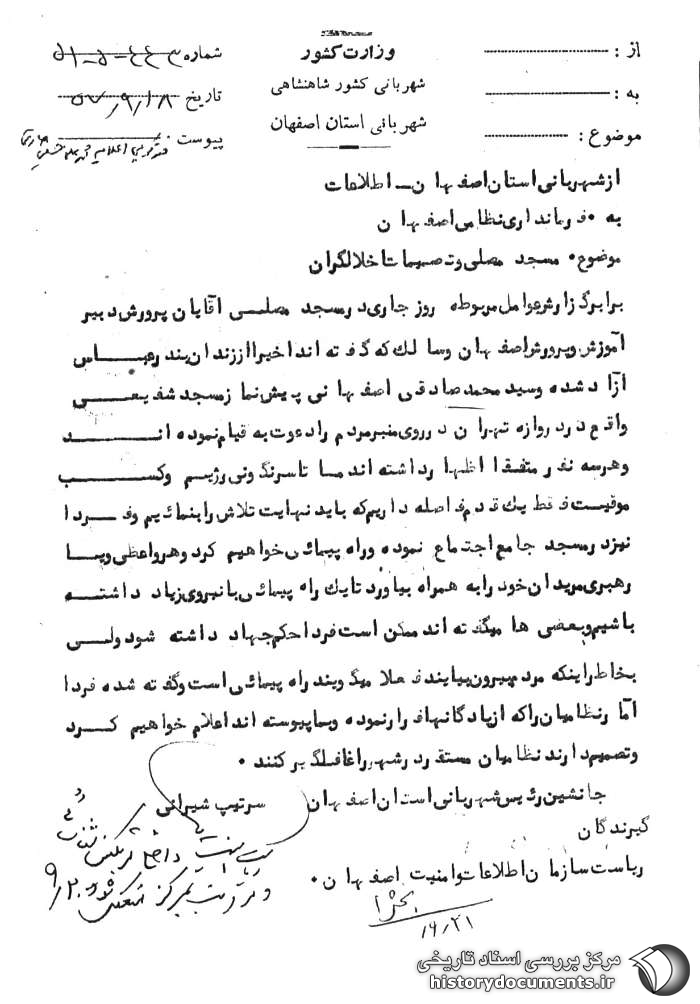 وزارت کشور
شهربانی کشور شاهنشاهی
شهربانی استان اصفهان
از :
به :
موضوع :
شماره ۴۴۳-۵-۵۱
تاریخ ۵۷/۹/۱۸
پیوست
ازشهربانی استان اصفهان - اطلاعات
به ۰ فرمانداری نظامی اصفهان
موضوع ۰ مسجد مصلی وتصمیمات اخلالگران
برابرگزارش عوامل مربوطه روز جاری درمسجد مصلی آقایان پرورش دبیر
آموزش وپرورش اصفهان وسالک که گفته اند اخیرا اززندان بندرعباس
آزاد شده وسید محمد صادقی اصفهانی پیش نماز مسجد شفیعی
واقع در دروازه تهران در روی منبرمردم را دعوت به قیام نموده اند
وهرسه نفر متفقا اظهار داشته اند ما تاسرنگونی رژیم وکسب
موفقیت فقط یك قدم فاصله داریم که باید نهایت تلاش را بنمائیم وفردا
نیز درمسجد جامع اجتماع نموده وراه پیمائی خواهیم کرد وهرواعظی ویا
رهبری مریدان خود را به همراه بیاورد تایك راه پیمائی با نیروی زیاد داشته
باشیم وبعضی ها میگفته اند ممکن است فردا حکم جهاد داشته شود ولی
بخاطراینکه مردم بیرون بیایند فعلا میگویند راه پیمائی است وگفته شده فردا
آمار نظامیان را که ازپادگانها فرارنموده وبما پیوسته اند اعلام خواهیم کرد
وتصمیم دارند نظامیان مستقر در شهر را غافلگیر کنند ۰
جانشین رئیس شهربانی استان اصفهان سرتیپ شیرانی
گیرندگان
ریاست سازمان اطلاعات وامنیت اصفهان ۰
۹/۲۰
۹/۲۱
مرکز بررسی اسناد تاریخی
historydocuments.ir